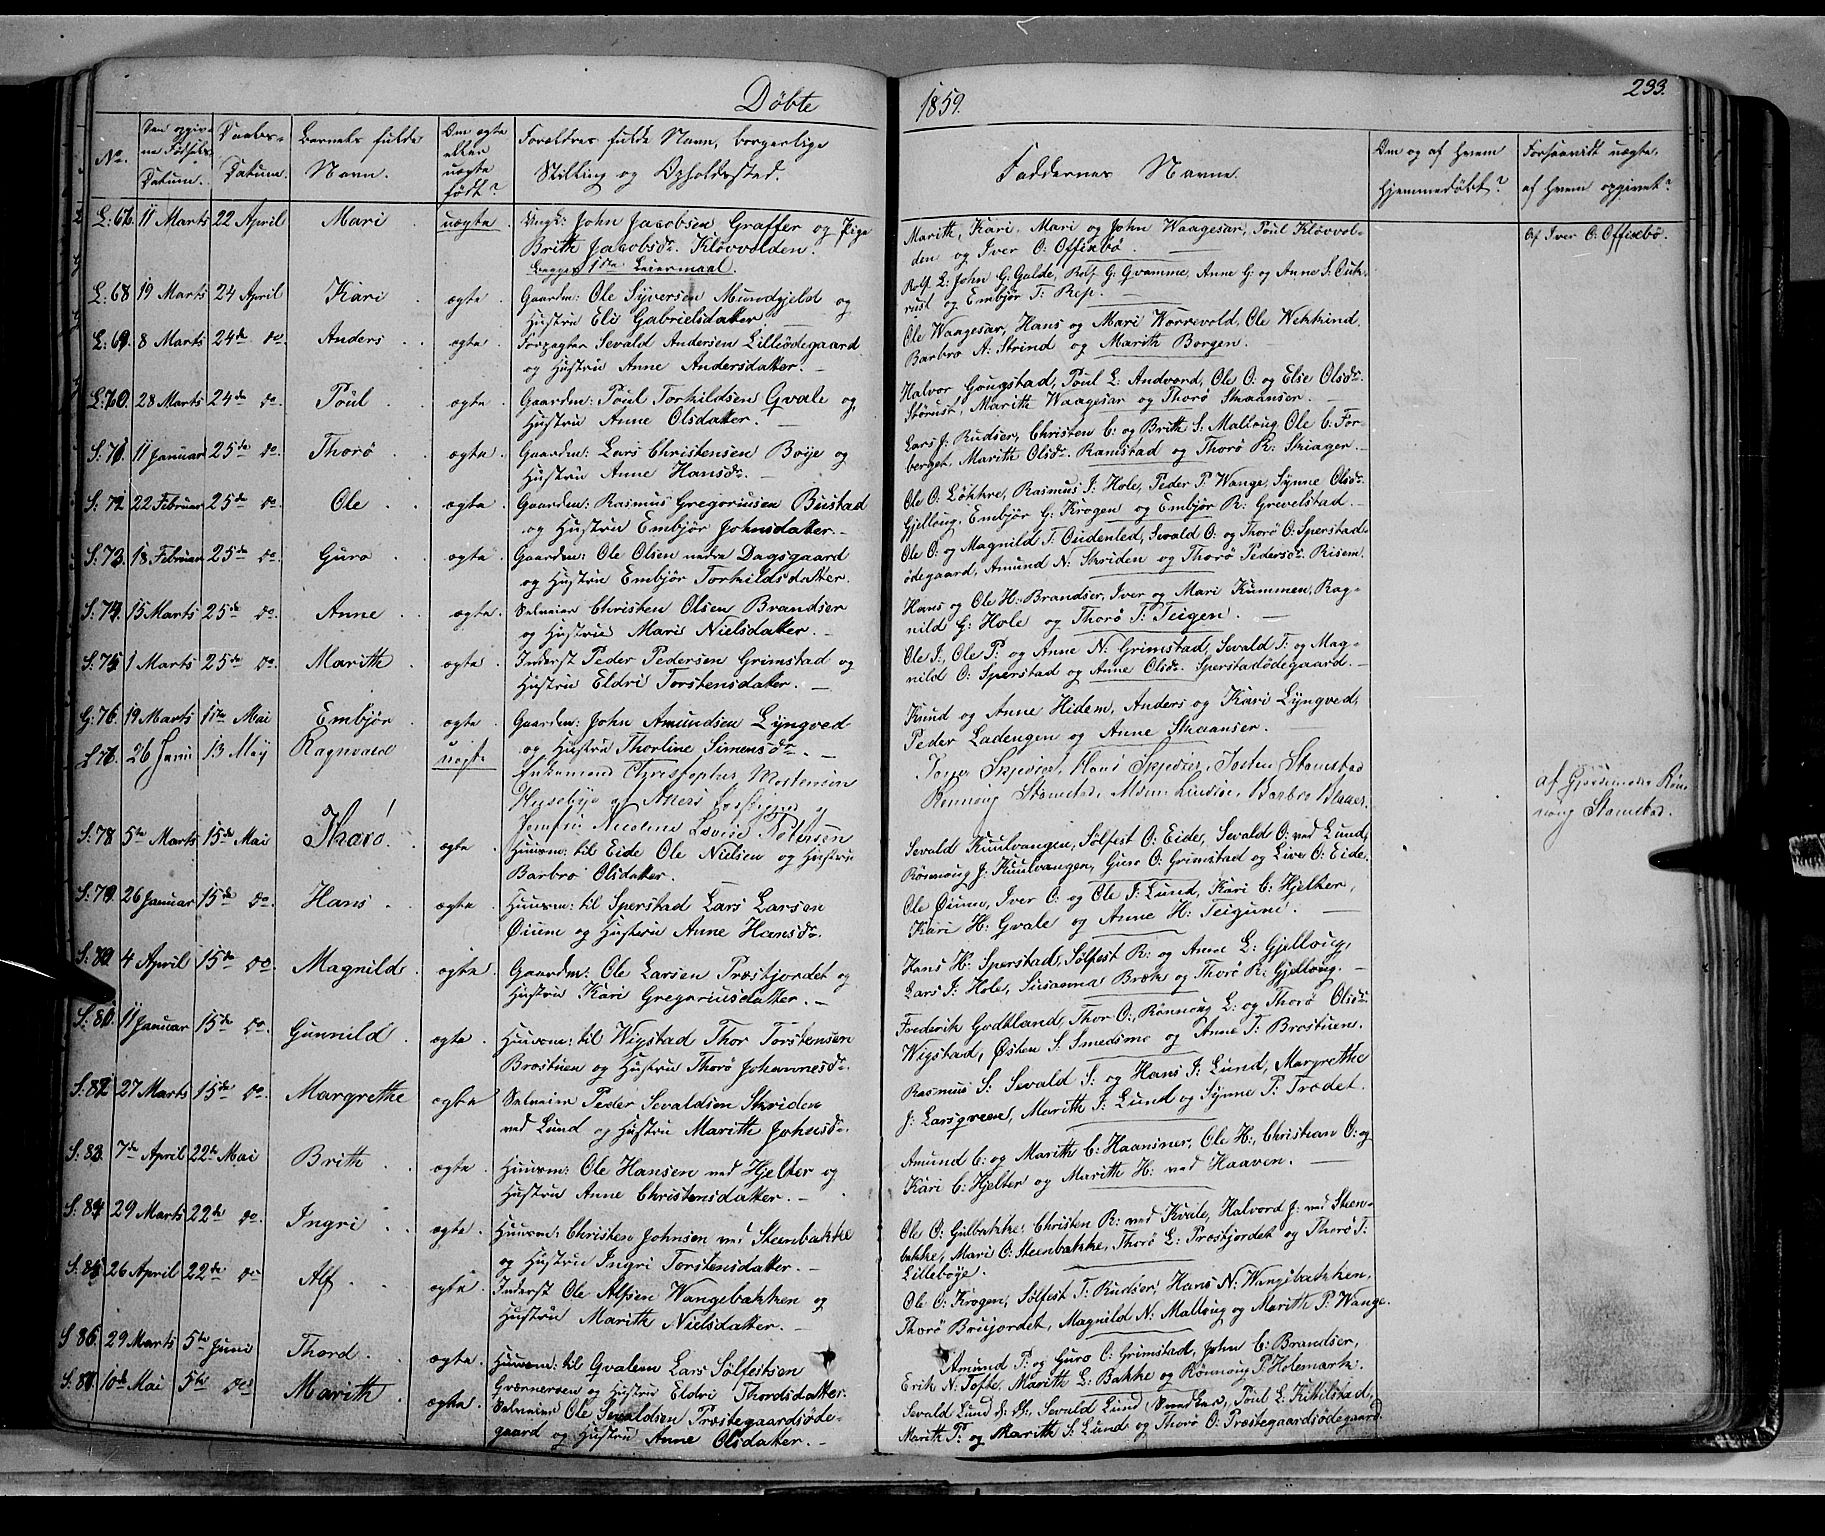 Døbte
1859.
233.
No.
Den opgivne Fødsels Datum.
Daabs-Datum.
Barnets fulde Navn.
Om ægte eller uægte født?
Forældres fulde Navn, borgerlige Stilling og Opholdssted.
Faddernes Navne.
Om og af hvem hjemmedøbt?
Forsaavidt uægte, af hvem opgivet?
L: 66. 11 Marts 22 April Mari uægte Ungk: John Jacobsen Graffer og Pige
Brith Jacobsdr. Kløvvolden.
Begges 1ste Leiermaal.
Marith, Kari, Mari og John Waagesar, Poul Kløvvol-
den og Iver O: Offixebø.
Af Iver O: Offixebø.
L: 68 19 Marts 24 April Kari ægte Gaardm: Ole Syversen Mundgjeld og
Hustru Eli Gabrielsdatter
Rolf L: John G: Galde, Rolf G: Gvamme, Anne G: og Anne S:
rust og Embjør T: Rep.
L: 69 8 Marts 24de do. Anders ægte Forpagter Sevald Andersen Lilleødegaard
og Hustru Anne Andersdatter.
Ole Waagesar, Hans og Mari Norrevold, Ole
Barbro A: Strind og Marith Borgen.
L: 70. 28 Marts 24de do. Poul ægte Gaardm: Poul Torkildsen Qvale og
Hustru Anne Olsdatter.
Halvor Gougstad, Poul L: Andvord, Ole O: og Else Olsdr.
Størust, Marith Waagesar og Thorø Skaansar.
S: 71. 11 Januar 25de do. Thorø ægte Gaardm: Lars Christensen Bøje og
Hustru Anne Hansdr.
Lars J: Rudser, Christen C: og Brith S: Malloug Ole C: For-
berget, Marith Olsdr. Ramstad og Thorø R: Skiager.
S: 72 22 Februar 25de do. Ole ægte Gaardm: Rasmus Gregoriusen Bustad
og Hustru Embjør Johnsdatter.
Ole O: Løkkre, Rasmus I: Hole, Peder P. Wange, Synne Olsdr.
Gjelloug, Embjør G: Krogen og Embjør R: Grevelstad.
S: 73. 18 Februar 25de do. Guro ægte Gaardm: Ole Olsen nedre Dagsgaard
og Hustru Embjør Torkildsdatter.
Ole O: og Magnild T. Oudenled, Sevald O: og Thorø O: Sperstad-
ødegaard, Amund N: Skriden og Thorø Pedersdr. Risem.
S: 74. 15 Marts 25de do. Anne ægte Selveier Christen Olsen Brandser
og Hustru Mari Nielsdatter.
Hans og Ole H: Brandser, Iver og Mari Kummen, Rag-
nild G: Hole og Thorø T: Teigen.
S: 75 1 Marts 25de do. Marith ægte Inderst Peder Pedersen Grimstad og
Hustru Eldri Torstensdatter.
Ole I:, Ole P: og Anne N: Grimstad, Sevald T: og Mag-
nild O: Sperstad og Anne Olsdr. Sperstadødegaard.
G: 76. 19 Marts 1ste Mai Embjør ægte Gaardm: John Amundsen Lyngved
og Hustru Thorline Simensdr.
Knud og Anne Hidem, Anders og Kari Lyngved,
Peder Ladengen og Anne Skaansar.
26 Janu 13 Maij Ragnvald uægte Enkemand Christopher Mortensen
Huseby og
Jomfru Nicoline Lovise Petersen
Skjedser, Hans Skjedser, Josten Stamstad
Rønnoug Stamstad, Barbro Blaaer.
af Gjordemoder Røn-
noug Stamstad.
S: 78 5te Marts 15de Mai Tharø ægte Huusm: til Eide Ole Nielsen og Hustru
Barbro Olsdatter.
Sevald Kuulvangen, Sølfest O: Eide, Sevald O: ved Lund,
Rønnoug J: Kuulvangen, Guro O: Grimstad og Live O: Eide.
S: 79 26 Januar 15de do. Hans ægte Huusm: til Sperstad Lars Larsen
Øium og Hustru Anne Hansdr.
Ole Øium, Iver O: og Ole I: Lund, Kari C: Hjelter,
Kari H: Gvale og Anne H: Teigum.
S: 80 4 April 15de do. Magnild ægte Gaardm: Ole Larsen Præstjordet og
Hustru Kari Gregoriusdatter.
Hans H: Sperstad, Sølfest R: og Anne L: Gjelloug,
Lars I: Hole, Susanna Bræk og Thorø R: Gjelloug.
S: 81. 11 Januar 15de do. Gunnild ægte Huusm: til Wigstad Thor Torstensen
Brostuen og Hustru Thorø Johannesdr.
Frederik Godtland, Thor O:, Rønnoug L: og Thorø Olsdr.
Wigstad, Østen S. Smedsmo og Anne T: Brostuen.
S: 82 27 Marts 15de do. Margrethe ægte Selveier Peder Sevaldsen Skriden
ved Lund og Hustru Marith Johnsdr.
Rasmus S: Sevald S: og Hans I: Lund, Margrethe
J: Larsgreen, Marith I: Lund og Synne P: Trædet.
S: 83. 7de April 22de Mai Brith ægte Huusm: Ole Hansen ved Hjelter og
Hustru Anne Christensdatter.
Amund C: og Marith C: Haansnar, Ole H:, Christian O: og
Kari C: Hjelter og Marith H: ved Haaven.
S: 84 29 Marts 22de do. Ingri ægte Huusm: Christen Johnsen ved Steenbakke
og Hustru Ingri Torstensdatter.
Ole O: Gulbakke, Christen R: ved Kvale, Halvord J: ved Steen-
bakke, Mari O: Steenbakke, Thorø L: Præstjordet og Thorø T:
Lillebøye.
S: 85 26 April 22de do Alf ægte Inderst Ole Alfsen Wangebakken og
Hustru Marith Nielsdatter.
Ole O: Krogen, Sølfest T: Rudser, Hans N: Wangsbakken,
Thorø Brujordet, Magnild N: Malloug og Marith P: Wange.
S: 86. 29 Marts 5te Juni Thord ægte Huusm: til Gvalem Lars Sølfestsen
Gværnerøen og Hustru Eldri Thordsdatter.
Amund P: og Guro O: Grimstad, John C: Brandser,
Erik N: Tofte, Marith L: Bakke og Rønnoug P: Holemark.
S: 87. 10de Mai 5te do Marith ægte Selveier Ole Sevaldsen Præstegaardsøde-
gaard og Hustru Anne Olsdatter.
Sevald Lund d: Æ:, Sevald Lund, Poul L: Kittilstad,
Marith P: og Marith S: Lund og Thorø O: Præstegaardsødegaard.